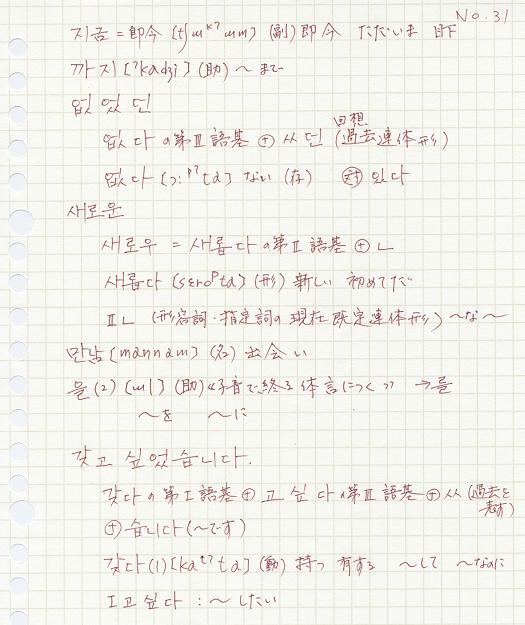 No.31
지금 = 即今 [tʃɯᵏ?ɯm] (副) 即今 ただいま 目下
까지 [?kadʒi] (助) ～まで
없었던
없다 の第Ⅲ語基 ⊕ ㅆ던 (回想過去連体形)
없다 [ɔ:ᵖ?ta] ない (存) ㊉ 있다
새로운
새로우 = 새롭다 の第Ⅱ語基 ⊕ ㄴ
새롭다 [sɛroᵖta] (形) 新しい 初めてだ
Ⅱㄴ (形容詞・指定詞の現在既定連体形) ～な～
만남 [mannam] (名) 出会い
을(2) [ɯl] (助) 《子音で終る体言につく》 → 를
～を ～に
갖고 싶었습니다.
갖다 の第Ⅰ語基 ⊕ 고 싶다 の第Ⅲ語基 ⊕ ㅆ (過去を表す)
⊕ 습니다 (～です)
갖다 (1) [kaᵗ?ta] (動) 持つ 有する ～して ～なのに
Ⅰ고싶다 : ～したい